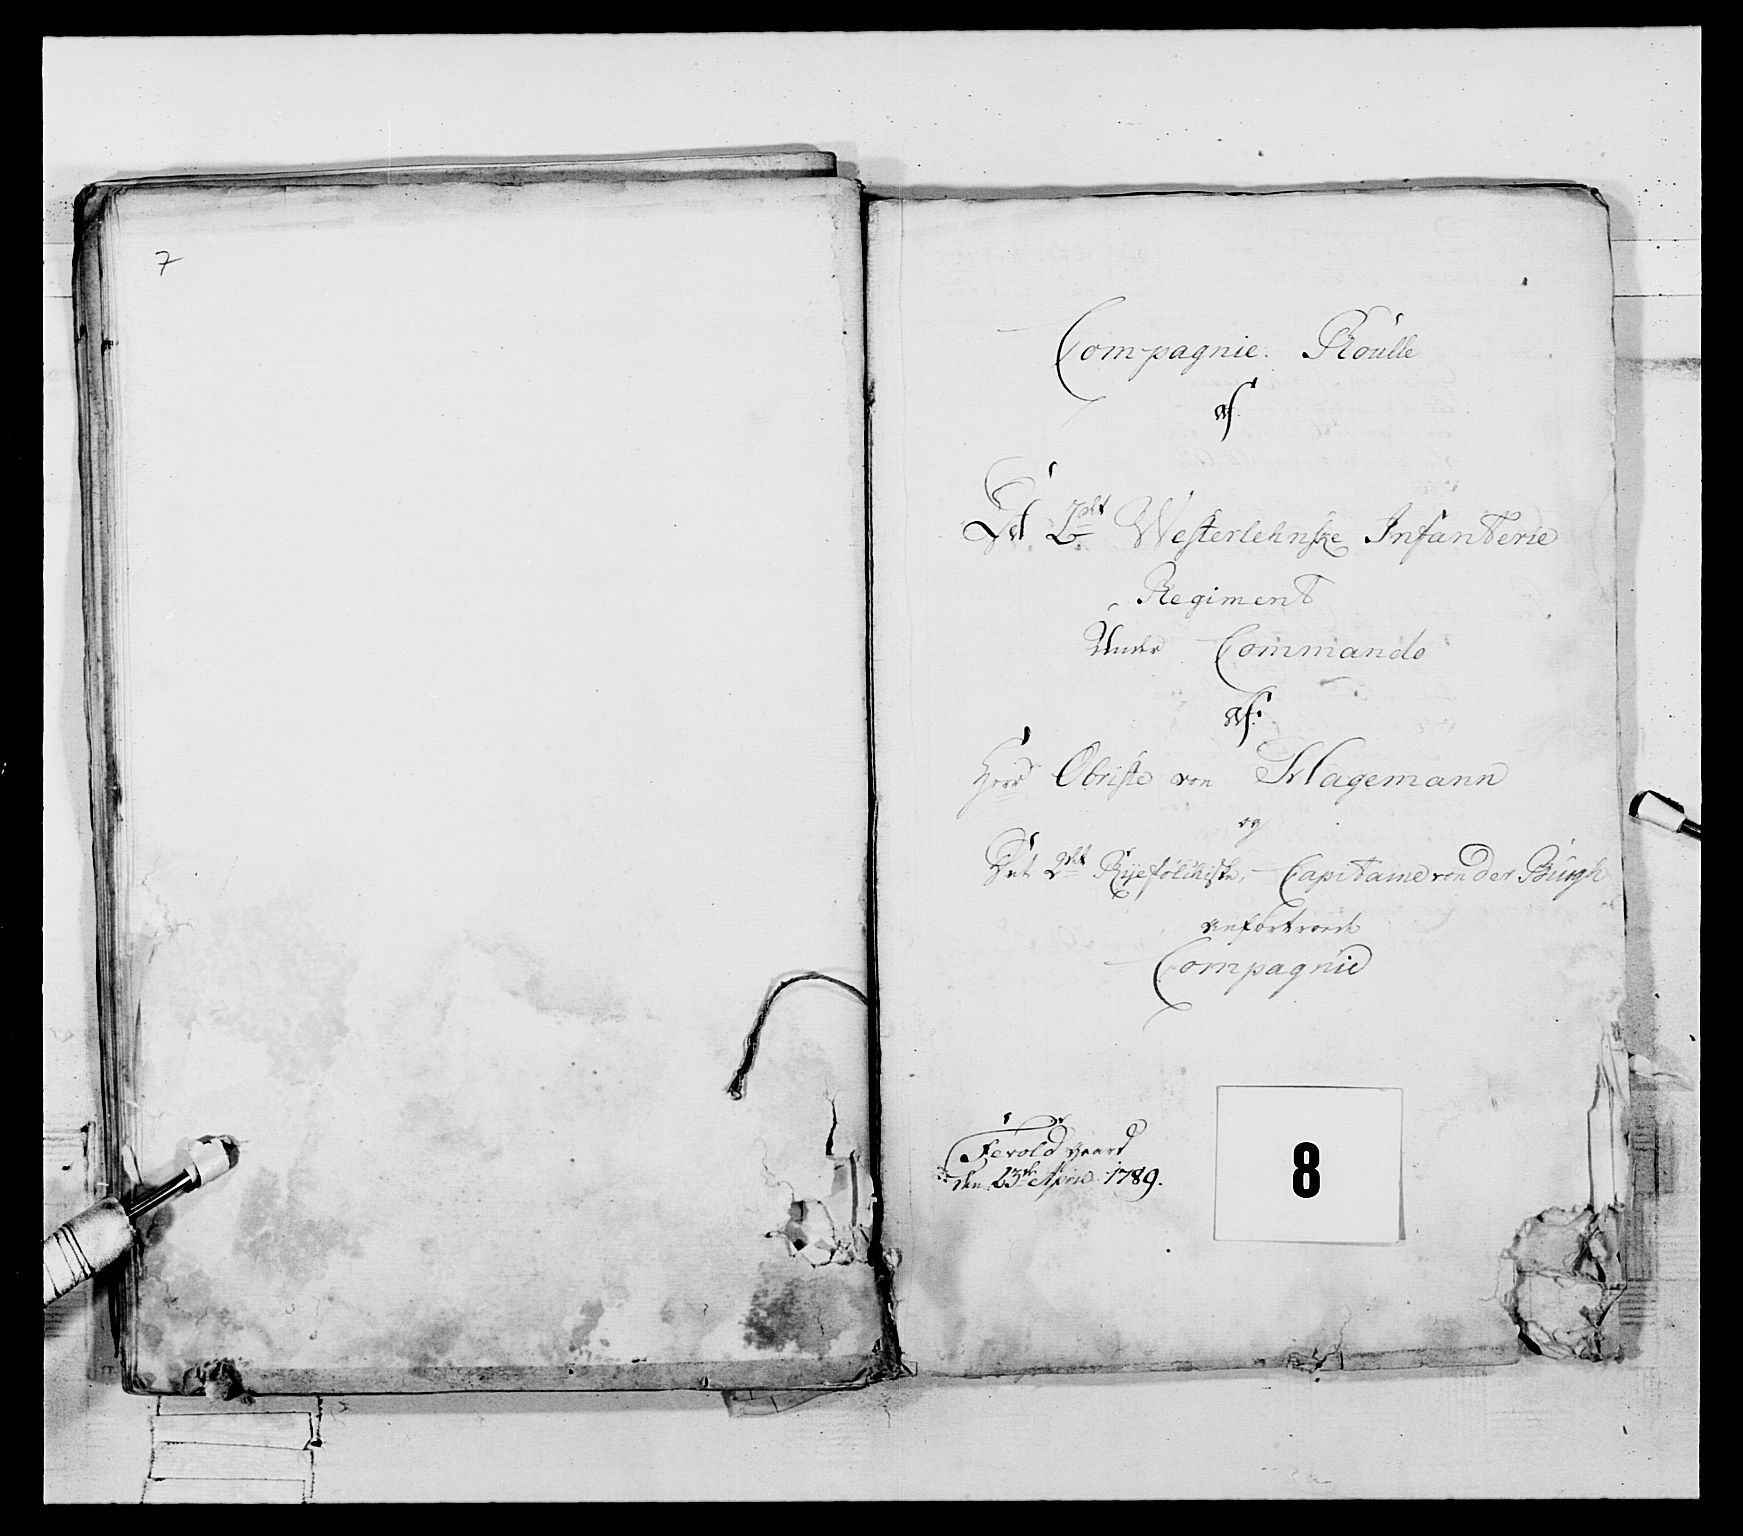 7
Compagnie. Roulle
af
Det 2det Westerlehnske Infanterie
Regiment
Under Commando
af
Herr Obriste von Hagemann
og
Det 2det Ryefölchiske, Capitaine von der Burgh
anfortroede
Compagnie
gaard
den 23de April 1789.
8